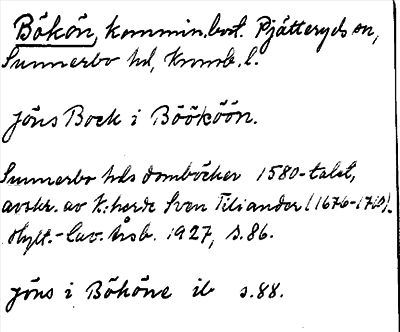 Bökön, kommin.bost. Pjätteryds sn,
Sunnerbo hd, Kronob. l.
Jöns Bock i Böököön.
Sunnerbo hds domböcker 1580-talet,
avskr. av K:herde Sven Tiliander (1676-1710).
Hylt.-Cav. årsb. 1927, s. 86.
Jöns i Bököne ib s. 88.